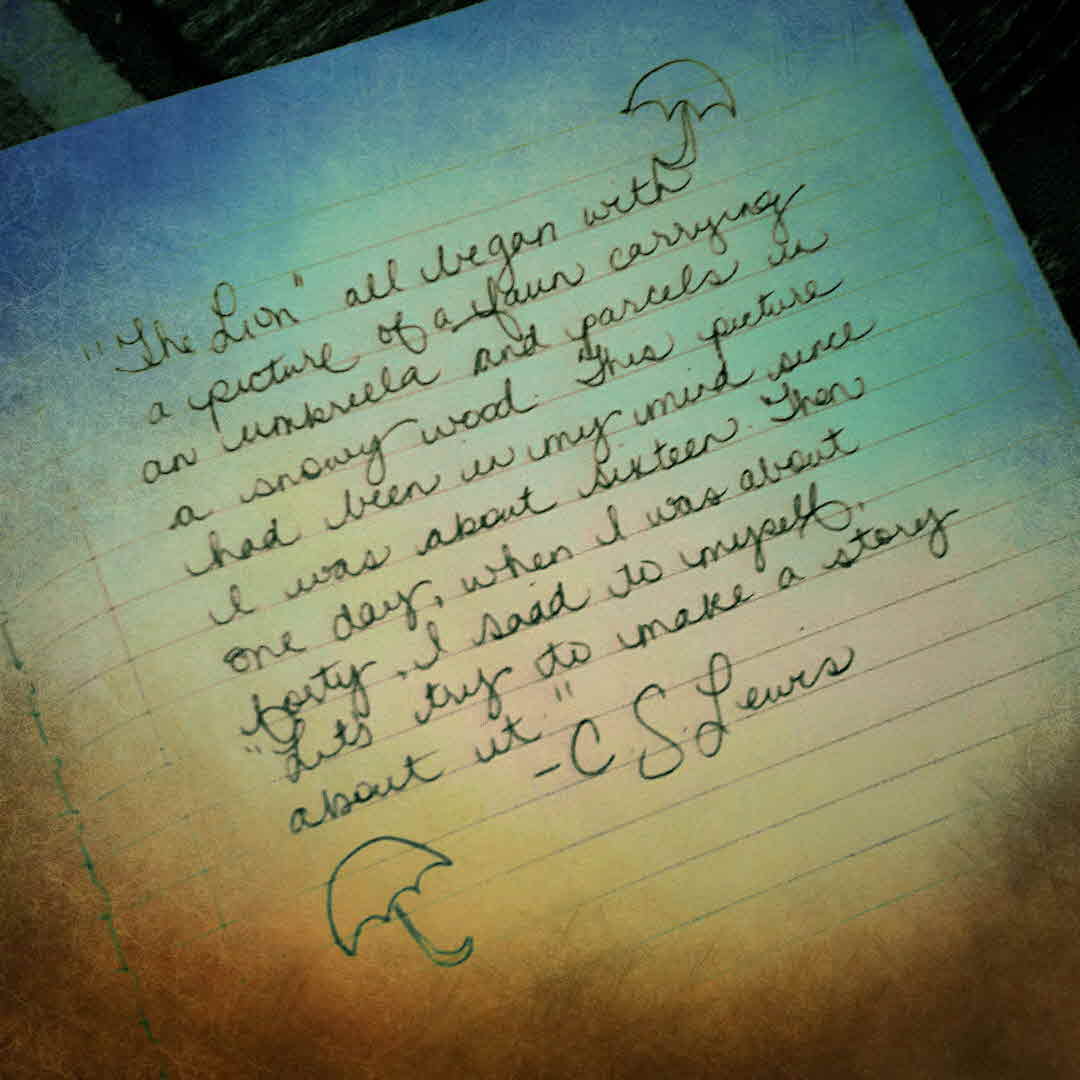 "The Lion" all began with
a picture of a faun carrying
an umbrella and parcels in
a snowy wood. This picture
had been in my mind since
I was about sixteen. Then
one day, when I was about
forty, I said to myself,
"Let's try to make a story
about it."
-C.S. Lewis